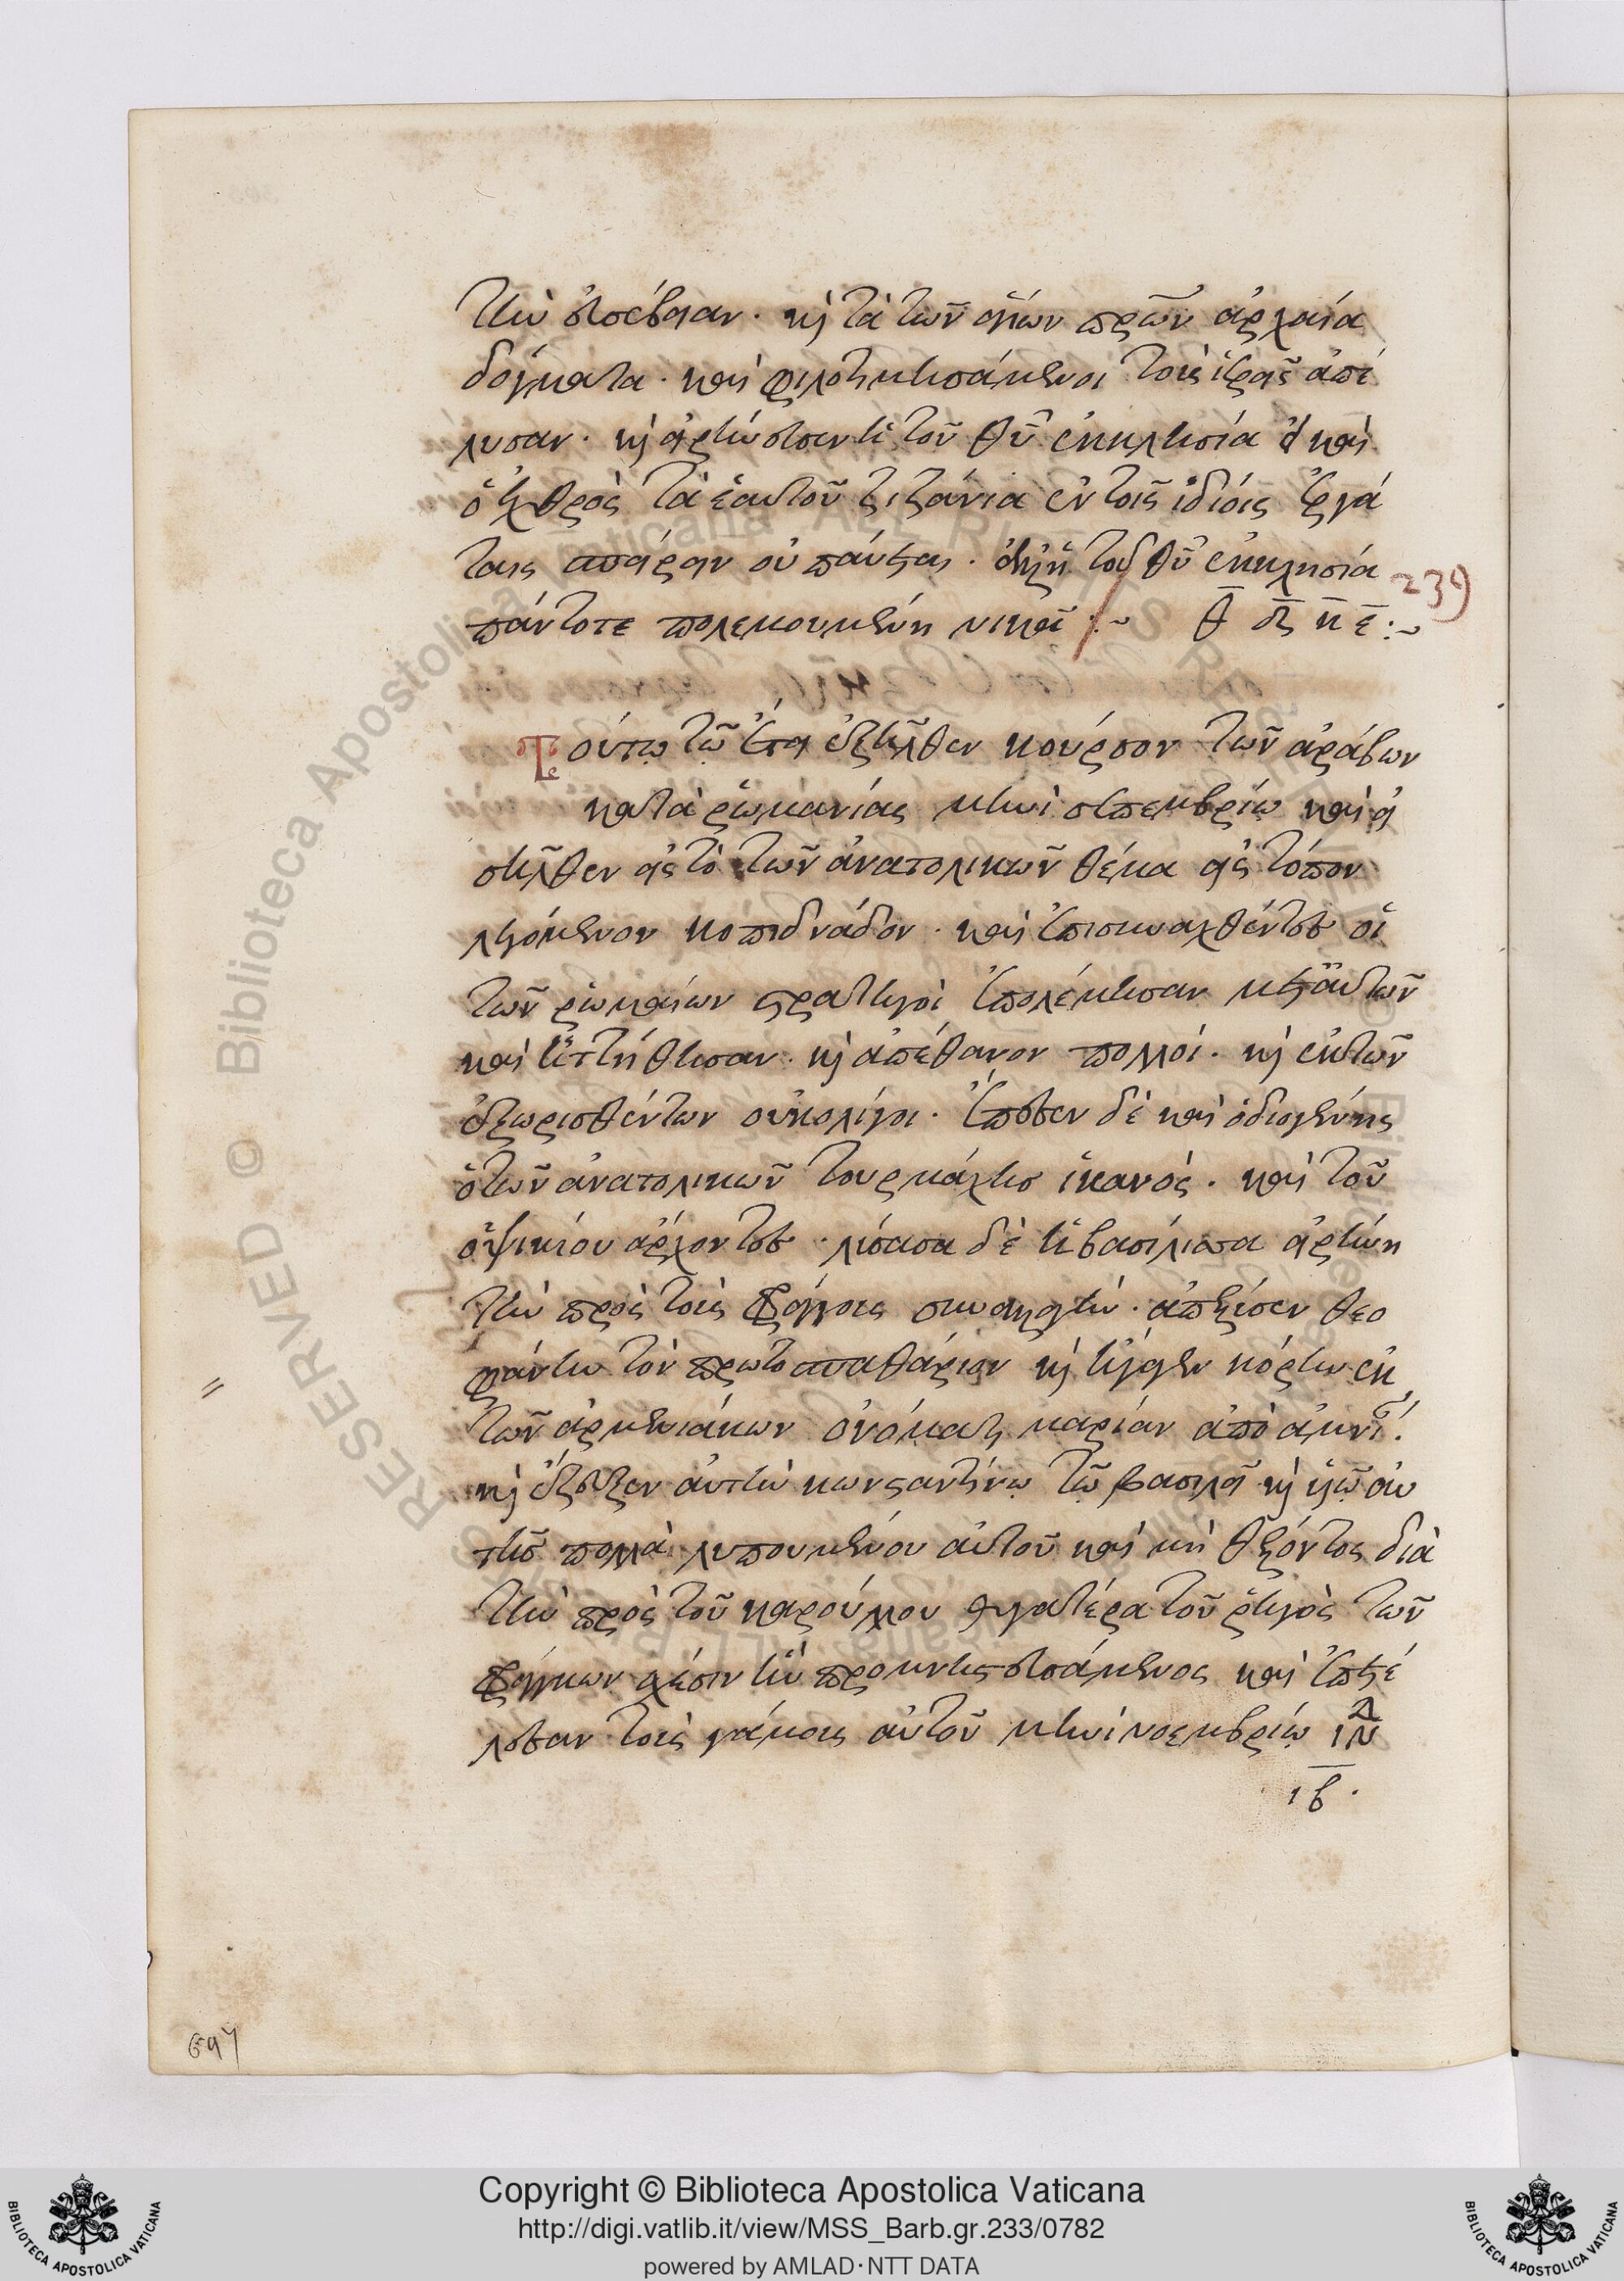 τὴν εὐσέβειαν. καὶ τὰ τῶν ἁγίων πρῶν ἀρχαῖα
δόγματα. καὶ φιλοτιμησάμενοι τοὺς ἱερεῖς ἀπέ
λυσαν. καὶ εἰρήνευσεν ἡ τοῦ θῦ ἐκκλησία εἰ καὶ
ὁ ἐχθρὸς τὰ ἑαυτοῦ ζιζάνια ἐν τοῖς ἰδίοις ἐργά
ταις σπείρειν οὐ παύεται. ἀλλ' ἡ τοῦ θῦ ἐκκλησία
πάντοτε πολεμουμένη νικᾶ :~ θ κε :~
239
Τούτῳ τῷ ἔτει ἐξῆλθεν κούρσον τῶν ἀράβων
κατὰ ῥωμανίας μηνὶ σεπτεμβρίῳ καὶ εἰ
σῆλθεν εἰς τὸ τῶν ἀνατολικῶν θέμα εἰς τόπον
λεγόμενον κοπιδνάδον. καὶ ἐπισυναχθέντες οἱ
τῶν ῥωμαίων στρατηγοὶ ἐπολέμησαν μετ' αὐτῶν
καὶ ἡττήθησαν. καὶ ἀπέθανον πολλοί. καὶ ἐκ τῶν
ἐξορισθέντων οὐκ ὀλίγοι. ἔπεσεν δὲ καὶ ὁ διογένης
ὁ τῶν ἀνατολικῶν τουρμάχης ἱκανός. καὶ τοῦ
ὀψικίου ἄρχοντες. λύσασα δὲ ἡ βασίλισσα εἰρήνη
τὴν πρὸς τοὺς φράγγους συναλλαγήν. ἀπέστειλεν θεο
φάνην τὸν πρωτοσπαθάριον καὶ ἤγαγεν κόρην ἐκ
τῶν ἀρμενιάκων ὀνόματι μαρίαν ἀπὸ ἀμνί.
καὶ ἔζευξεν αὐτὴν κωνσταντίνῳ τῷ βασιλεῖ καὶ υἱῷ αὐ
τῆς πολλὰ λυπουμένου αὐτοῦ καὶ μὴ θέλοντος διὰ
τὴν πρὸς τοῦ καρούλλου θυγατέρα τοῦ ῥηγὸς τῶν
φράγγων σχέσιν ἣν προμνηστευσάμενος καὶ ἐπετέ
λεσαν τοὺς γάμους αὐτοῦ μηνὶ νοεμβρίῳ ἰνδ
ιβ.
697
Copyright © Biblioteca Apostolica Vaticana
http://digi.vatlib.it/view/MSS_Barb.gr.233/0782
powered by AMLAD·NTT DATA